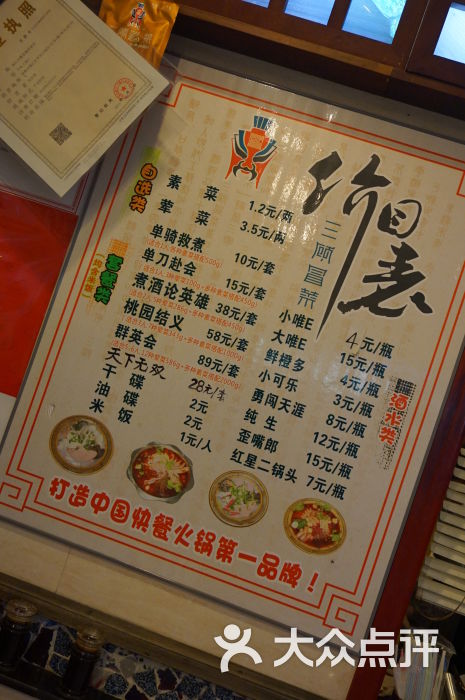 价目表
三顾冒菜
自选类
素菜 1.2元/两
荤菜 3.5元/两
套餐类
单骑救煮 10元/套
单刀赴会 15元/套
煮酒论英雄 38元/套
桃园结义 58元/套
群英会 89元/套
天下无双 28元/套
干碟 2元
油碟 2元
米饭 1元/人
酒水类
小唯E 4元/瓶
大唯E 15元/瓶
鲜橙多 4元/瓶
小可乐 3元/瓶
勇闯天涯 8元/瓶
纯生 12元/瓶
歪嘴郎 15元/瓶
红星二锅头 7元/瓶
打造中国快餐火锅第一品牌！
大众点评